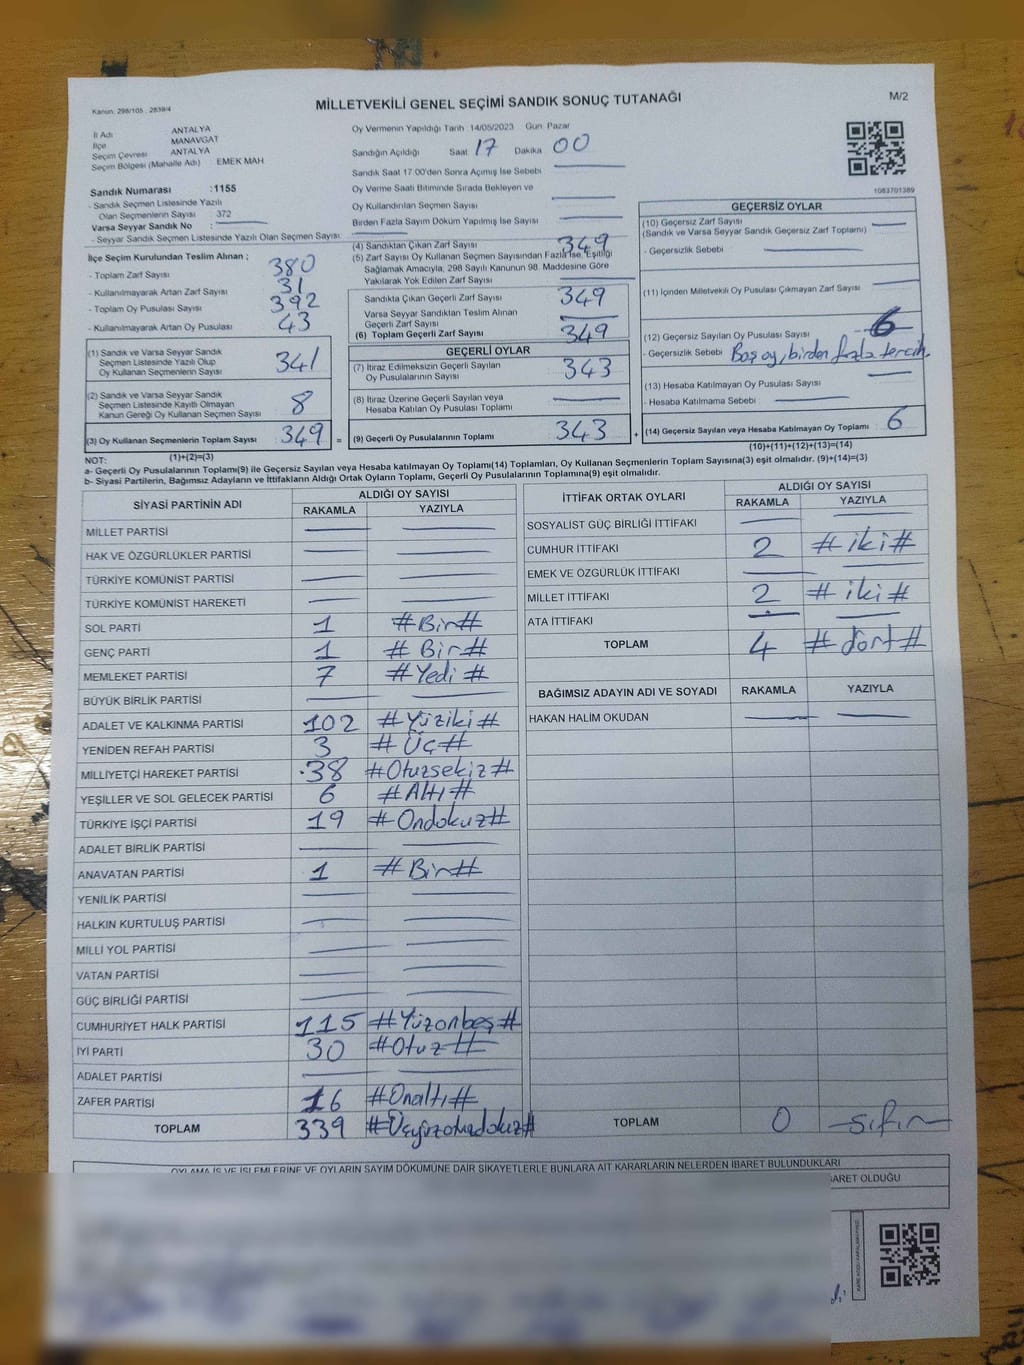 Kanun: 298/105 , 2839/4
MİLLETVEKİLİ GENEL SEÇİMİ SANDIK SONUÇ TUTANAĞI
M/2
İl Adı ANTALYA
İlçe MANAVGAT
Seçim Çevresi ANTALYA
Seçim Bölgesi (Mahalle Adı) EMEK MAH
Sandık Numarası :1155
- Sandık Seçmen Listesinde Yazılı
Olan Seçmenlerin Sayısı : 372
Varsa Seyyar Sandık No :
- Seyyar Sandık Seçmen Listesinde Yazılı Olan Seçmen Sayısı:
Oy Vermenin Yapıldığı Tarih :14/05/2023 Gün: Pazar
Sandığın Açıldığı Saat 17 Dakika 00
Sandık Saat 17.00'den Sonra Açımış İse Sebebi
Oy Verme Saati Bitiminde Sırada Bekleyen ve
Oy Kullandırılan Seçmen Sayısı
Birden Fazla Sayım Döküm Yapılmış İse Sayısı
1083701389
İlçe Seçim Kurulundan Teslim Alınan ;
- Toplam Zarf Sayısı 380
- Kullanılmayarak Artan Zarf Sayısı 31
- Toplam Oy Pusulası Sayısı 392
- Kullanılmayarak Artan Oy Pusulası 43
(1) Sandık ve Varsa Seyyar Sandık
Seçmen Listesinde Yazılı Olup
Oy Kullanan Seçmenlerin Sayısı 341
(2) Sandık ve Varsa Seyyar Sandık
Seçmen Listesinde Kayıtlı Olmayan
Kanun Gereği Oy Kullanan Seçmen Sayısı 8
(3) Oy Kullanan Seçmenlerin Toplam Sayısı 349 =
(4) Sandıktan Çıkan Zarf Sayısı 349
(5) Zarf Sayısı Oy Kullanan Seçmen Sayısından Fazla İse, Eşitliği
Sağlamak Amacıyla, 298 Sayılı Kanunun 98. Maddesine Göre
Yakılarak Yok Edilen Zarf Sayısı
Sandıkta Çıkan Geçerli Zarf Sayısı 349
Varsa Seyyar Sandıktan Teslim Alınan
Geçerli Zarf Sayısı
(6) Toplam Geçerli Zarf Sayısı 349
GEÇERLİ OYLAR
(7) İtiraz Edilmeksizin Geçerli Sayılan
Oy Pusulalarının Sayısı 343
(8) İtiraz Üzerine Geçerli Sayılan veya
Hesaba Katılan Oy Pusulası Toplamı
(9) Geçerli Oy Pusulalarının Toplamı 343 +
GEÇERSİZ OYLAR
(10) Geçersiz Zarf Sayısı
(Sandık ve Varsa Seyyar Sandık Geçersiz Zarf Toplamı)
- Geçersizlik Sebebi
(11) İçinden Milletvekili Oy Pusulası Çıkmayan Zarf Sayısı
(12) Geçersiz Sayılan Oy Pusulası Sayısı 6
- Geçersizlik Sebebi Boş oy, birden fazla tercih.
(13) Hesaba Katılmayan Oy Pusulası Sayısı
- Hesaba Katılmama Sebebi
(14) Geçersiz Sayılan veya Hesaba Katılmayan Oy Toplamı 6
NOT: (1)+(2)=(3) (10)+(11)+(12)+(13)=(14)
a- Geçerli Oy Pusulaları Toplamı(9) ile Geçersiz Sayılan veya Hesaba katılmayan Oy Toplamı(14) Toplamları, Oy Kullanan Seçmenlerin Toplam Sayısına(3) eşit olmalıdır. (9)+(14)=(3)
b- Siyasi Partilerin, Bağımsız Adayların ve İttifakların Aldığı Ortak Oyların Toplamı, Geçerli Oy Pusulalarının Toplamına(9) eşit olmalıdır.
SİYASİ PARTİNİN ADI ALDIĞI OY SAYISI
RAKAMLA YAZIYLA
MİLLET PARTİSİ
HAK VE ÖZGÜRLÜKLER PARTİSİ
TÜRKİYE KOMÜNİST PARTİSİ
TÜRKİYE KOMÜNİST HAREKETİ
SOL PARTİ 1 #Bir#
GENÇ PARTİ 1 #Bir#
MEMLEKET PARTİSİ 7 #Yedi#
BÜYÜK BİRLİK PARTİSİ
ADALET VE KALKINMA PARTİSİ 102 #Yüziki#
YENİDEN REFAH PARTİSİ 3 #Üç#
MİLLİYETÇİ HAREKET PARTİSİ 38 #Otuzsekiz#
YEŞİLLER VE SOL GELECEK PARTİSİ 6 #Altı#
TÜRKİYE İŞÇİ PARTİSİ 19 #Ondokuz#
ADALET BİRLİK PARTİSİ
ANAVATAN PARTİSİ 1 #Bir#
YENİLİK PARTİSİ
HALKIN KURTULUŞ PARTİSİ
MİLLİ YOL PARTİSİ
VATAN PARTİSİ
GÜÇ BİRLİĞİ PARTİSİ
CUMHURİYET HALK PARTİSİ 115 #Yüzonbeş#
İYİ PARTİ 30 #Otuz#
ADALET PARTİSİ
ZAFER PARTİSİ 16 #Onaltı#
TOPLAM 339 #Üçyüzotuzdokuz#
İTTİFAK ORTAK OYLARI ALDIĞI OY SAYISI
RAKAMLA YAZIYLA
SOSYALİST GÜÇ BİRLİĞİ İTTİFAKI
CUMHUR İTTİFAKI 2 #iki#
EMEK VE ÖZGÜRLÜK İTTİFAKI
MİLLET İTTİFAKI 2 #iki#
ATA İTTİFAKI
TOPLAM 4 #dört#
BAĞIMSIZ ADAYIN ADI VE SOYADI RAKAMLA YAZIYLA
HAKAN HALİM OKUDAN
TOPLAM 0 sıfır
OYLAMA İŞ VE İŞLEMLERİNE VE OYLARIN SAYIM DÖKÜMÜNE DAİR ŞİKAYETLERLE BUNLARA AİT KARARLARIN NELERDEN İBARET BULUNDUKLARI
İBARET OLDUĞU